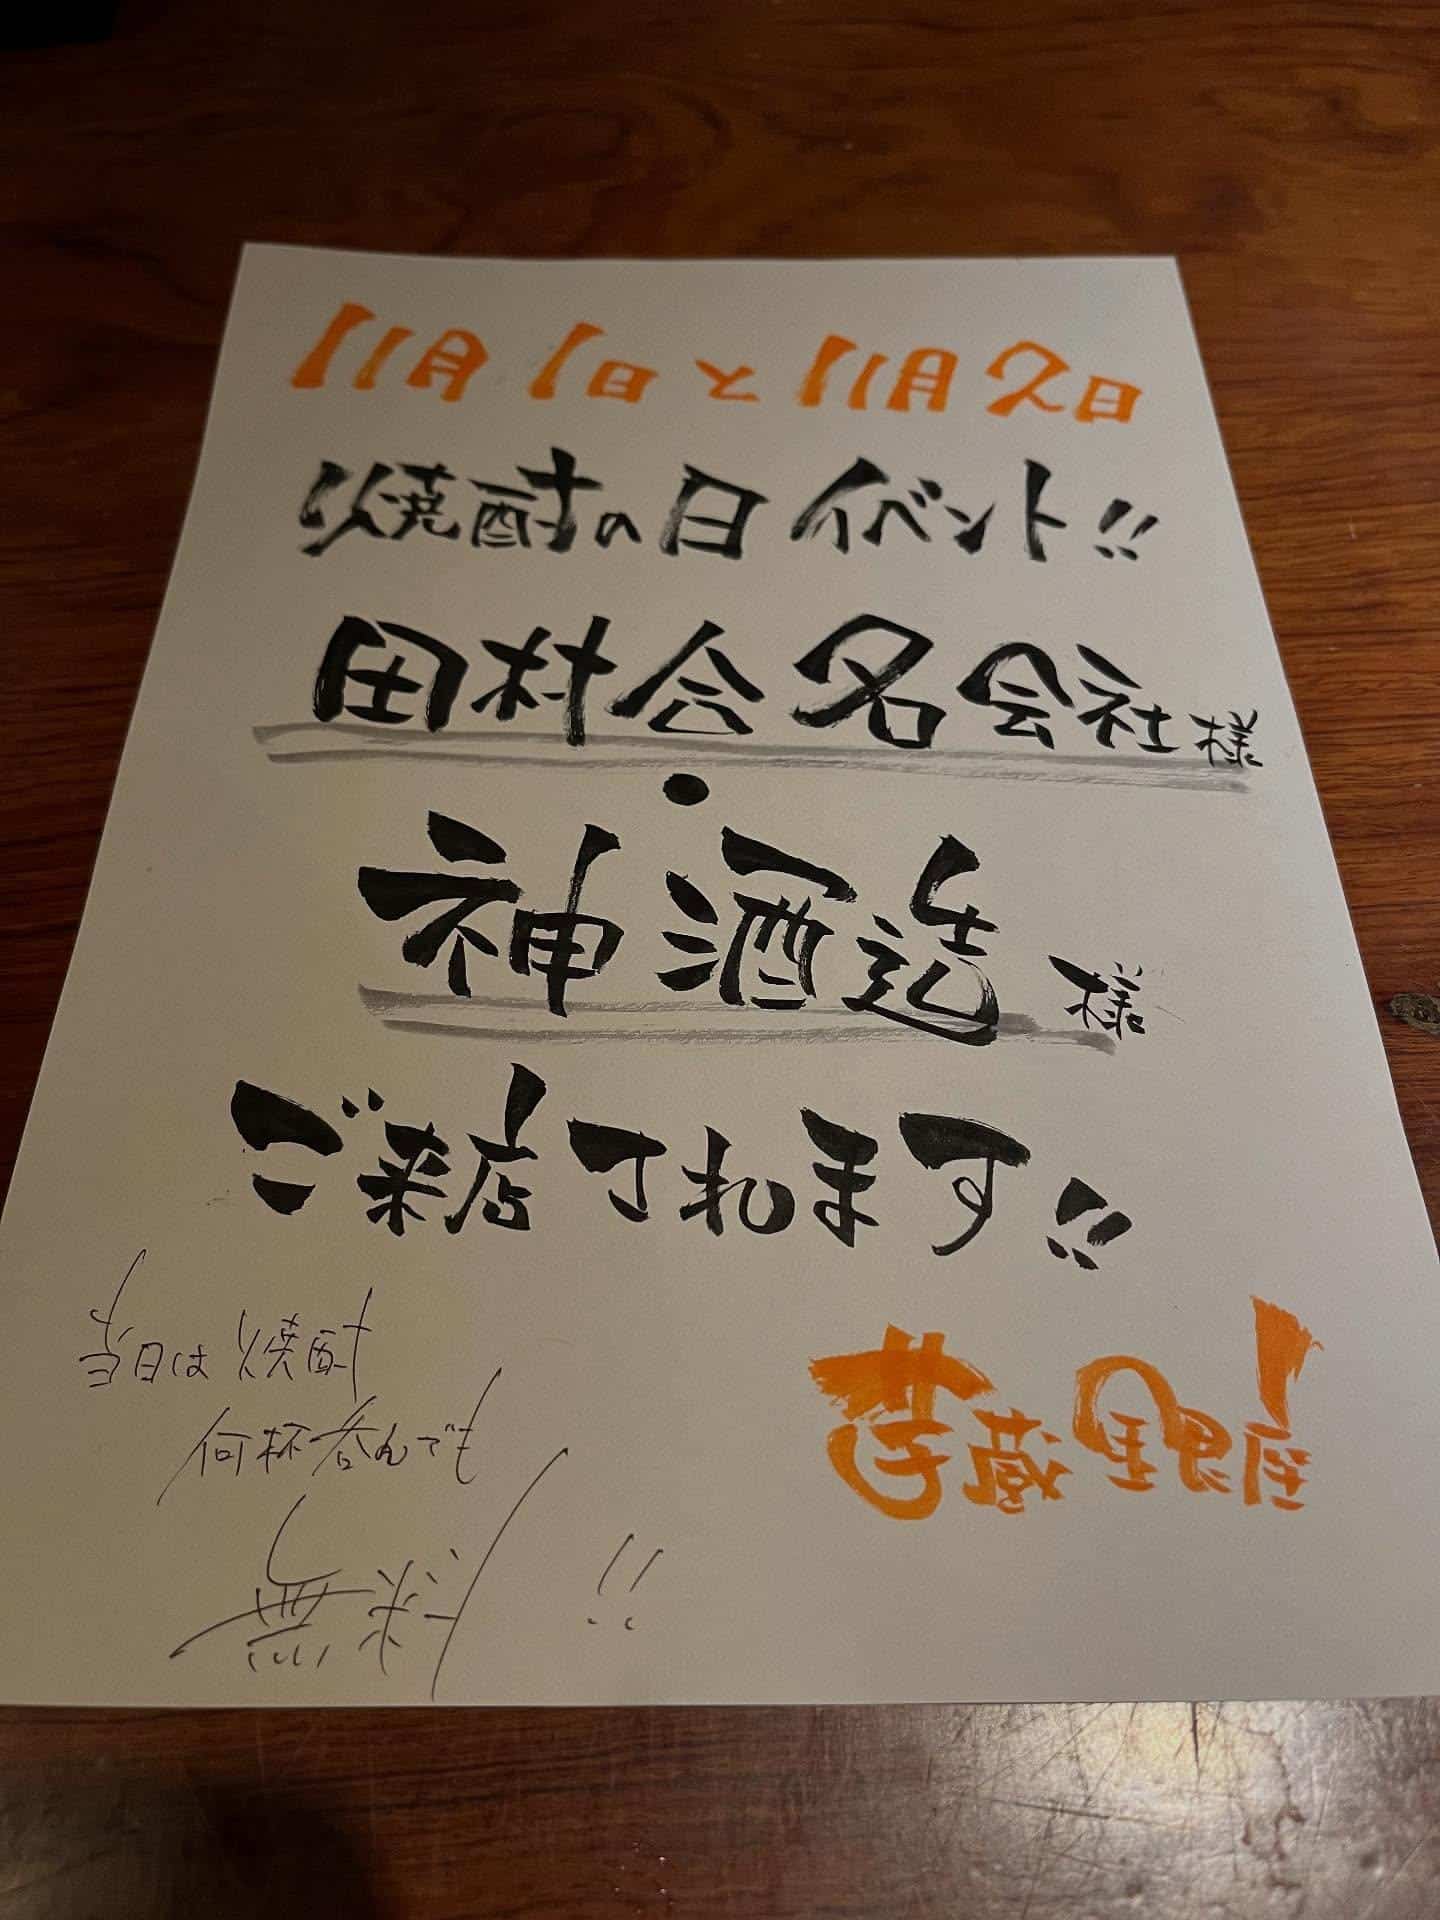 11月1日と11月2日
焼酎の日イベント!!
田村合名会社様
・
神酒造様
ご来店されます!!
当日は焼酎
何杯呑んでも
無料!!